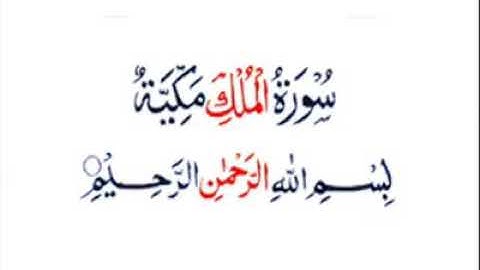 سُوْرَةُ الْمُلْكِ مَكِّيَّةٌ
بِسْمِ اللهِ الرَّحْمٰنِ الرَّحِيْمِ